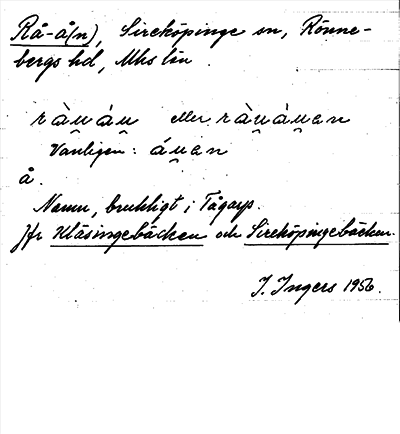 Rå-å(n), Sireköpinge sn, Rönne-
bergs hd, Mhs län.
ràu̯áu̯ eller ràu̯áu̯an
Vanligen: áu̯an
å.
Namn, brukligt i Tågarp.
Jfr Kläsingebäcken och Sireköpingebäcken.
I. Ingers 1956.